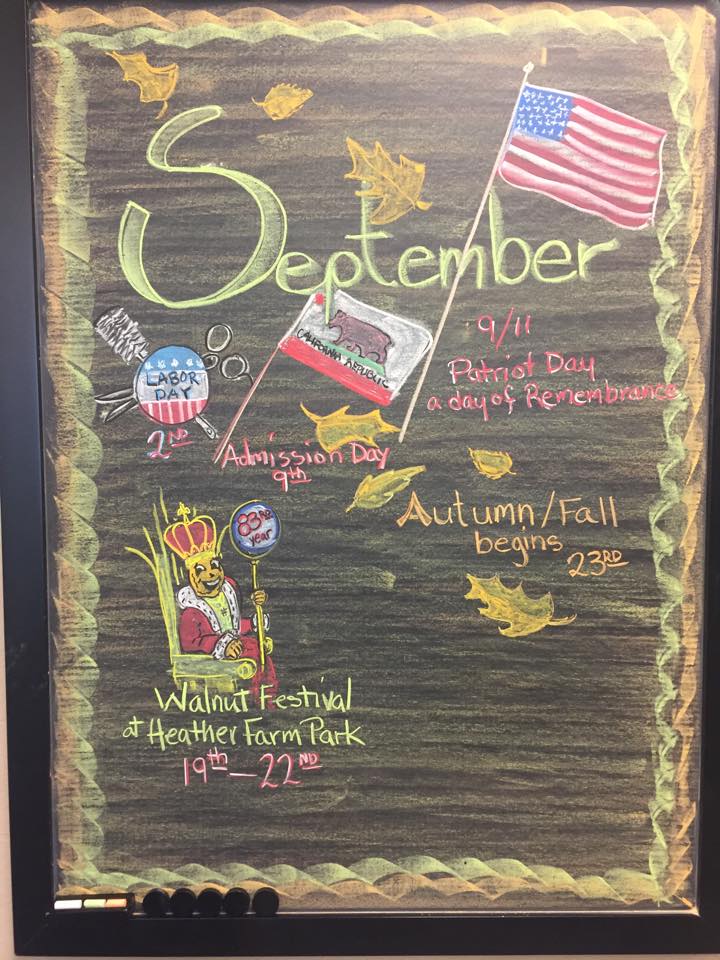 September
LABOR
DAY
2ND
CALIFORNIA REPUBLIC
Admission Day
9th
9/11
Patriot Day
a day of Remembrance
Autumn/Fall
begins
23RD
83RD
year
Walnut Festival
at Heather Farm Park
19th - 22ND